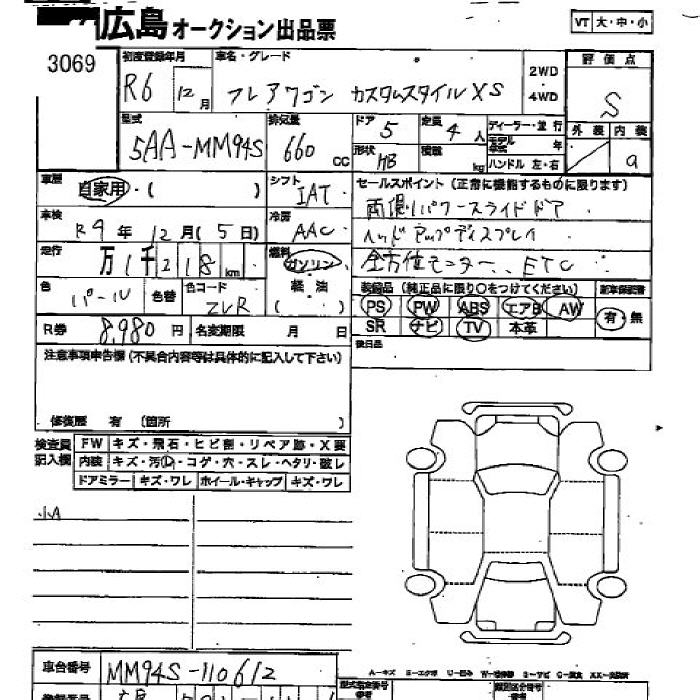 広島オークション出品票
VT 大・中・小
3069
初度登録年月 車名・グレード
R6 12月 フレアワゴン カスタムスタイル XS
2WD・4WD
評価点
S
型式 排気量 ドア 定員 ディーラー・並行
5AA-MM94S 660 cc 5 4人
モデル年式 年
形状 積載 ハンドル 左・右
HB kg
外装 内装
a
車歴 シフト セールスポイント (正常に機能するものに限ります)
自家用・( ) IAT 両側パワースライドドア
車検 冷房
R9年12月(5日) AAC ヘッドアップディスプレイ
走行 燃料
万1千218km ガソリン 全方位モニター、ETC
軽油
( )
色 色替 色コード
パール ZVR
装備品 (純正品に限り○をつけてください) 新車保証書
PS PW ABS エアB AW 有・無
SR ナビ TV 本革
R券 8,980円 名変期限 月 日
後日品
注意事項申告欄(不具合内容等は具体的に記入して下さい)
修復歴 有 (箇所 )
検査員記入欄
FW キズ・飛石・ヒビ割・リペア跡・X要
内装 キズ・汚レ・コゲ・穴・スレ・ヘタリ・破レ
ドアミラー キズ・ワレ ホイール・キャップ キズ・ワレ
小A
車台番号 MM94S-110612